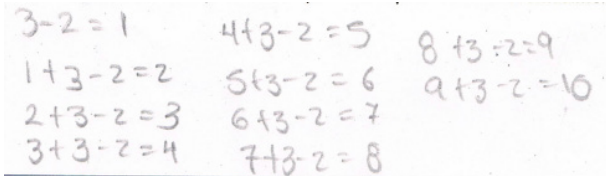 3-2=1
1+3-2=2
2+3-2=3
3+3-2=4
4+3-2=5
5+3-2=6
6+3-2=7
7+3-2=8
8+3-2=9
9+3-2=10